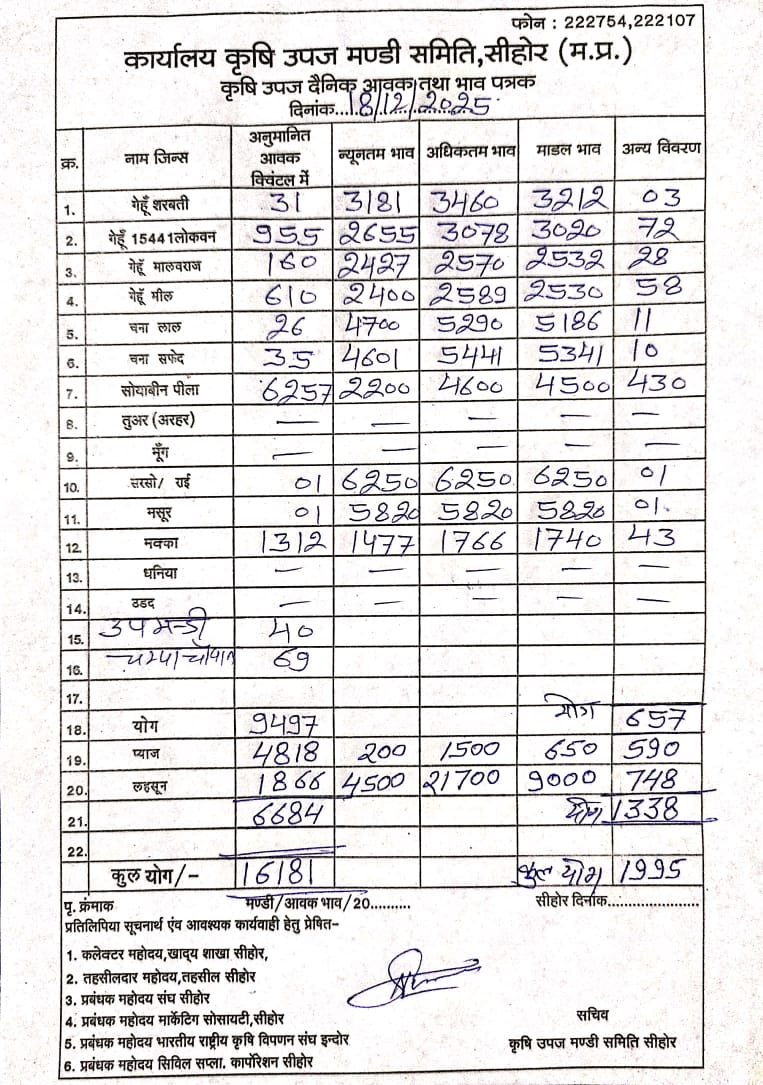 फोन : 222754,222107
कार्यालय कृषि उपज मण्डी समिति,सीहोर (म.प्र.)
कृषि उपज दैनिक आवक तथा भाव पत्रक
दिनांक...18/12/2025
क्र. नाम जिन्स अनुमानित आवक क्विंटल में न्यूनतम भाव अधिकतम भाव माडल भाव अन्य विवरण
1. गेहूँ शरबती 31 3181 3460 3212 03
2. गेहूँ 15441लोकवन 955 2655 3078 3020 72
3. गेहूँ मालवराज 160 2427 2570 2532 28
4. गेहूँ मील 610 2400 2589 2530 58
5. चना लाल 26 4700 5290 5186 11
6. चना सफेद 35 4601 5441 5341 10
7. सोयाबीन पीला 6257 2200 4600 4500 430
8. तुअर (अरहर) — — — — —
9. मूँग — — — — —
10. सरसो/ राई 01 6250 6250 6250 01
11. मसूर 01 5820 5820 5820 01.
12. मक्का 1312 1477 1766 1740 43
13. धनिया — — — — —
14. उडद — — — — —
15. उपमन्डी 40
16. 69
17.
18. योग 9497 योग 657
19. प्याज 4818 200 1500 650 590
20. लहसून 1866 4500 21700 9000 748
21. 6684 योग 1338
22.
कुल योग/- 16181 कुल योग 1995
पृ. क्रंमाक मण्डी/आवक भाव/20.......... सीहोर दिनांक.......................
प्रतिलिपिया सूचनार्थ एंव आवश्यक कार्यवाही हेतु प्रेषित-
1. कलेक्टर महोदय,खाद्य शाखा सीहोर,
2. तहसीलदार महोदय,तहसील सीहोर
3. प्रबंधक महोदय संघ सीहोर
4. प्रबंधक महोदय मार्केटिग सोसायटी,सीहोर सचिव
5. प्रबंधक महोदय भारतीय राष्ट्रीय कृषि विपणन संघ इन्दोर कृषि उपज मण्डी समिति सीहोर
6. प्रबंधक महोदय सिविल सप्ला. कार्पोरेशन सीहोर